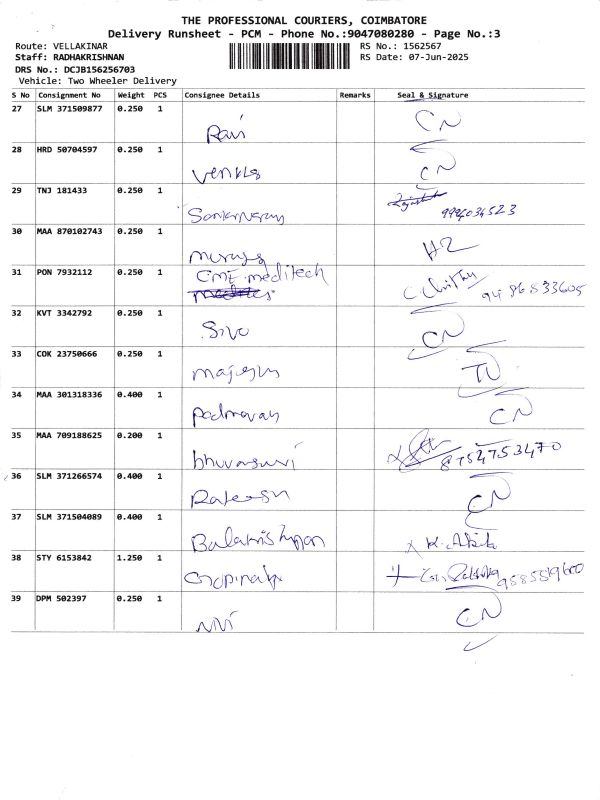 THE PROFESSIONAL COURIERS, COIMBATORE
Delivery Runsheet - PCM - Phone No.:9047080280 - Page No.:3
Route: VELLAKINAR RS No.: 1562567
Staff: RADHAKRISHNAN RS Date: 07-Jun-2025
DRS No.: DCJB156256703
Vehicle: Two Wheeler Delivery
S No Consignment No Weight PCS Consignee Details Remarks Seal & Signature
27 SLM 371509877 0.250 1
Ravi CN
28 HRD 50704597 0.250 1
CN
29 TNJ 181433 0.250 1
9994034523
30 MAA 870102743 0.250 1
H2
31 PON 7932112 0.250 1
CME meditech
32 KVT 3342792 0.250 1
Siva CN
33 COK 23750666 0.250 1
34 MAA 301318336 0.400 1
CN
35 MAA 709188625 0.200 1
bhuvaneswari 8754753470
36 SLM 371266574 0.400 1
Rakesh CN
37 SLM 371504089 0.400 1
38 STY 6153842 1.250 1
Gopinath
39 DPM 502397 0.250 1
CN